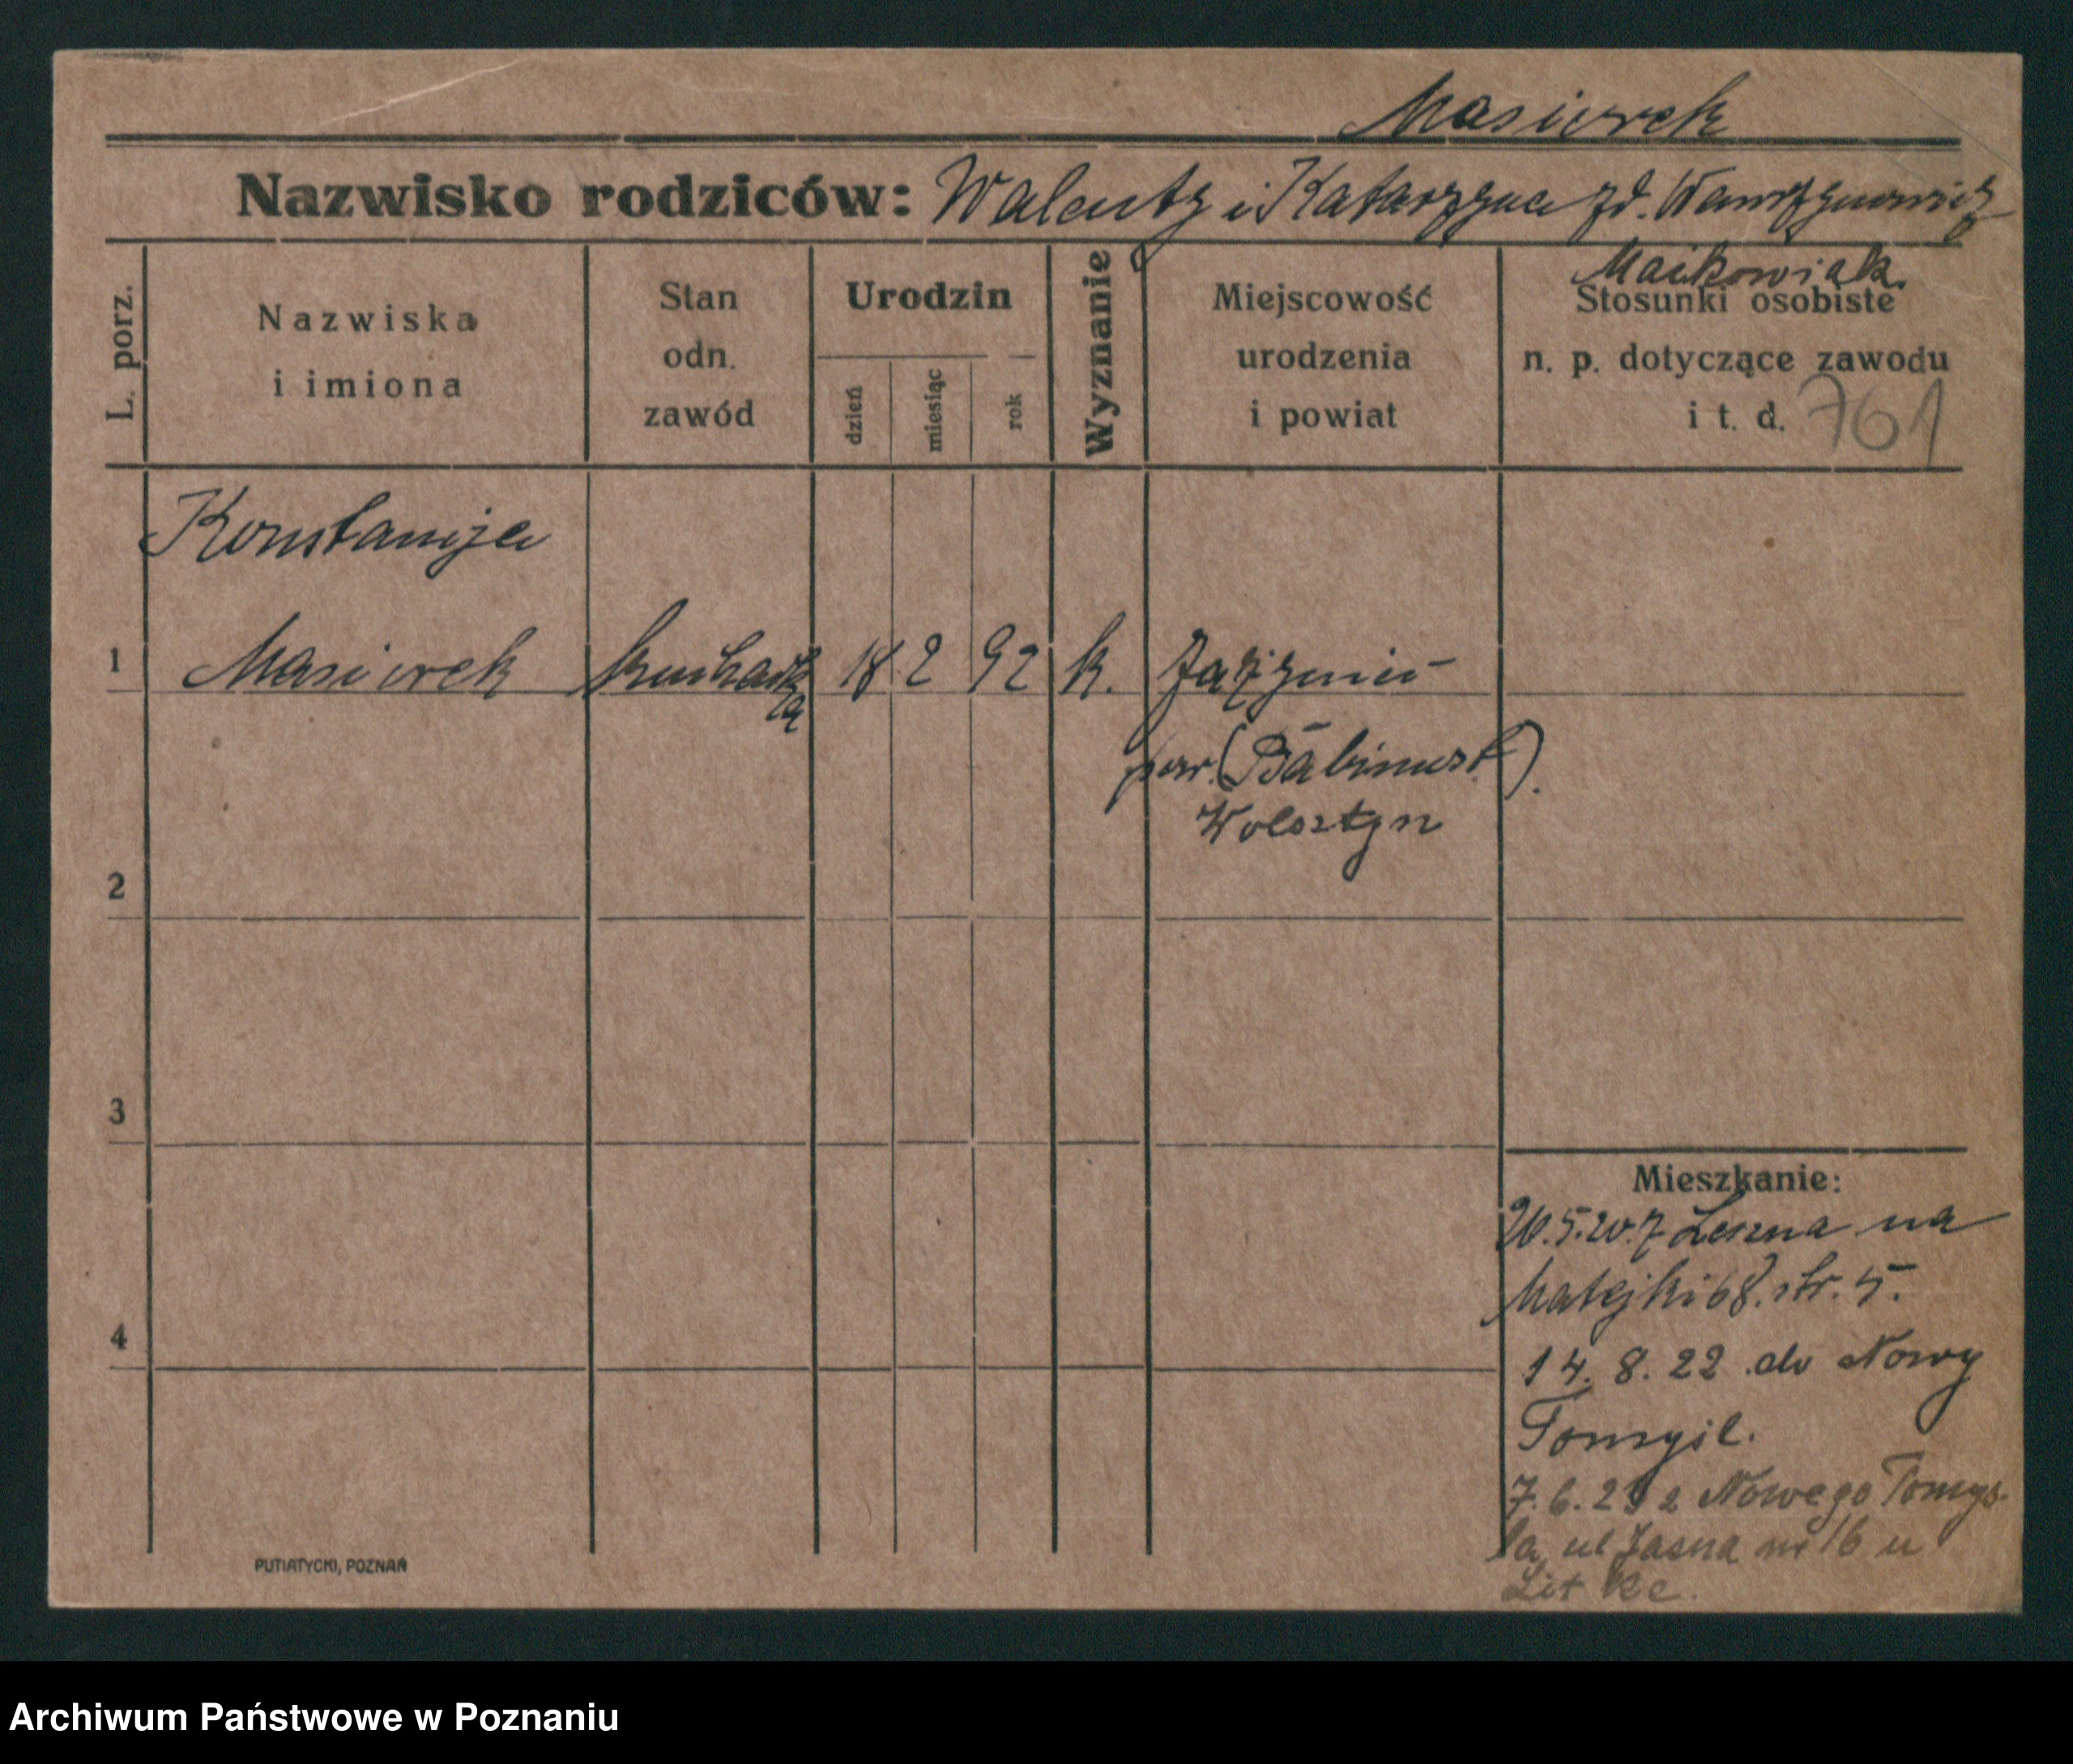 Masiorek
Nazwisko rodziców: Walenty i Katarzyna zd. Wawrzynowicz
Maćkowiak.
L. porz.
Nazwiska
i imiona
Stan
odn.
zawód
Urodzin
dzień
miesiąc
rok
Wyznanie
Miejscowość
urodzenia
i powiat
Stosunki osobiste
n. p. dotyczące zawodu
i t. d. 761
Konstancja
1 Masiorek kucharka 18 2 92 k.
pow. (Babimost).
Wolsztyn
2
3
4
Mieszkanie:
20.5.20. z Leszna na
Matejki 68. str. 5.
14. 8. 22 do Nowy
Tomyśl.
7. 6. 23 z Nowego Tomyś-
la ul Jasna nr 16 u
PUTIATYCKI, POZNAŃ
Archiwum Państwowe w Poznaniu